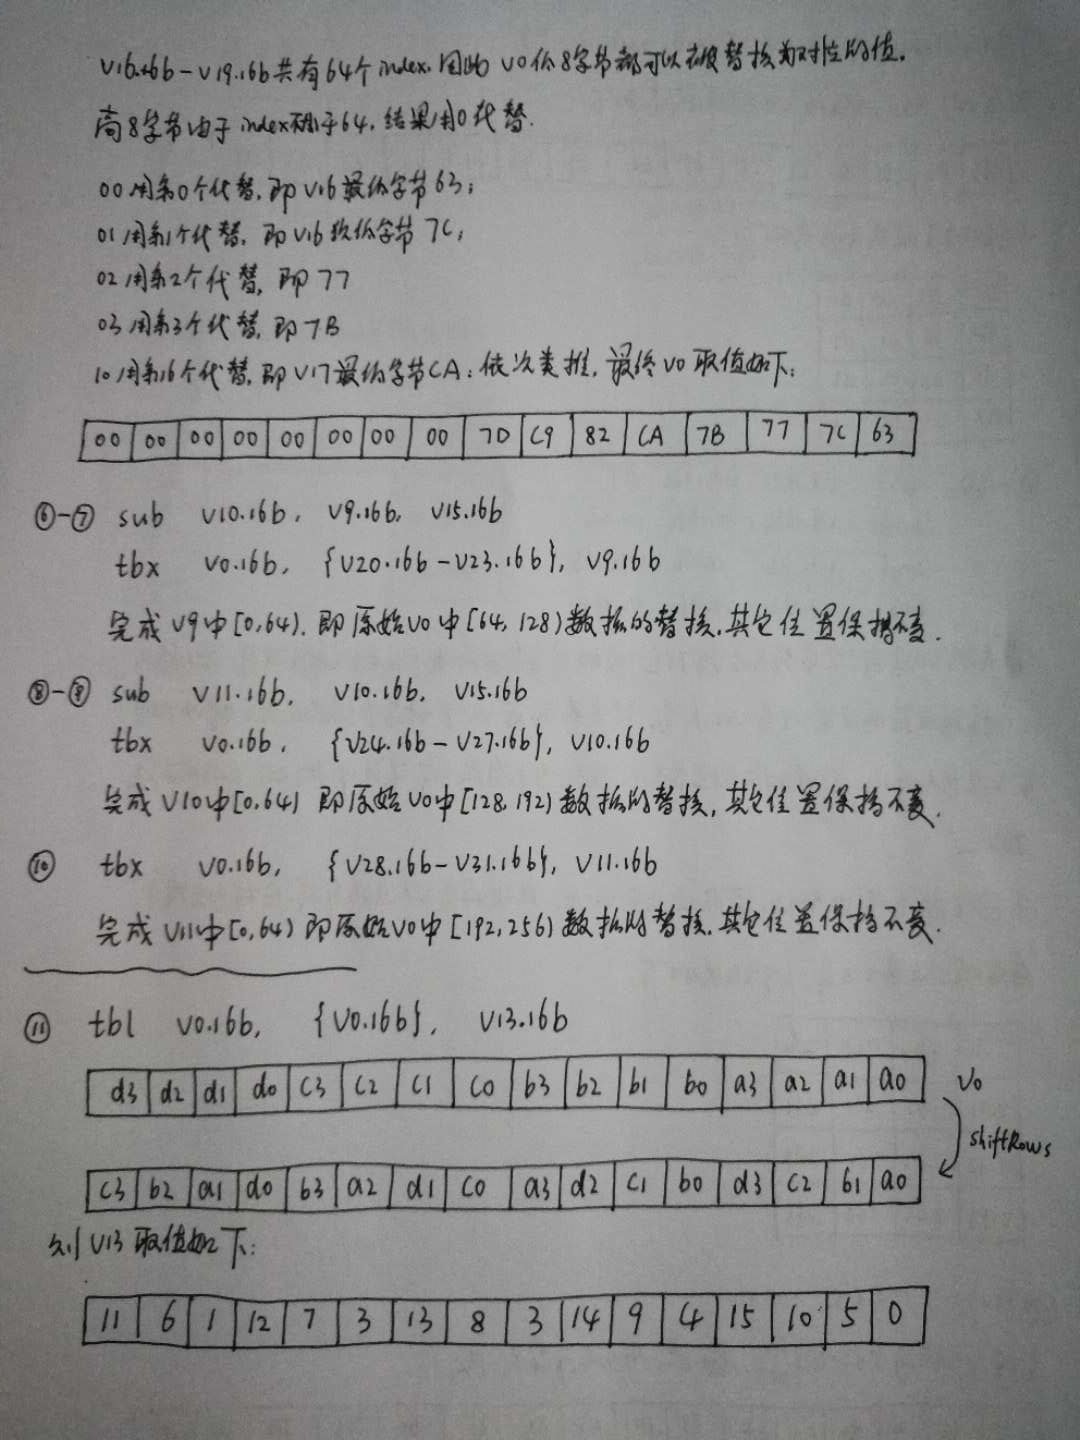 V16.16b-V19.16b共有64个index.因此 V0低8字节都可以被替换为对应的值.
高8字节由于index不小于64,结果用0代替.
00用第0个代替,即V16最低字节63;
01用第1个代替,即V16次低字节7C;
02用第2个代替,即77
03用第3个代替,即7B
10用第16个代替,即V17最低字节CA;依次类推,最终V0取值如下:
00 00 00 00 00 00 00 00 7D C9 82 CA 7B 77 7C 63
⑥-⑦ sub V10.16b, V9.16b, V15.16b
tbx V0.16b, {V20.16b-V23.16b}, V9.16b
完成V9中[0,64).即原始V0中[64,128)数据的替换,其它位置保持不变.
⑧-⑨ sub V11.16b, V10.16b, V15.16b
tbx V0.16b, {V24.16b-V27.16b}, V10.16b
完成V10中[0,64)即原始V0中[128,192)数据的替换,其它位置保持不变.
⑩ tbx V0.16b, {V28.16b-V31.16b}, V11.16b
完成V11中[0,64)即原始V0中[192,256)数据的替换.其它位置保持不变.
⑪ tbl V0.16b, {V0.16b}, V13.16b
d3 d2 d1 d0 C3 C2 C1 C0 b3 b2 b1 b0 a3 a2 a1 a0 V0
shiftRows
C3 b2 a1 d0 b3 a2 d1 C0 a3 d2 C1 b0 d3 C2 b1 a0
则V13取值如下:
11 6 1 12 7 3 13 8 3 14 9 4 15 10 5 0